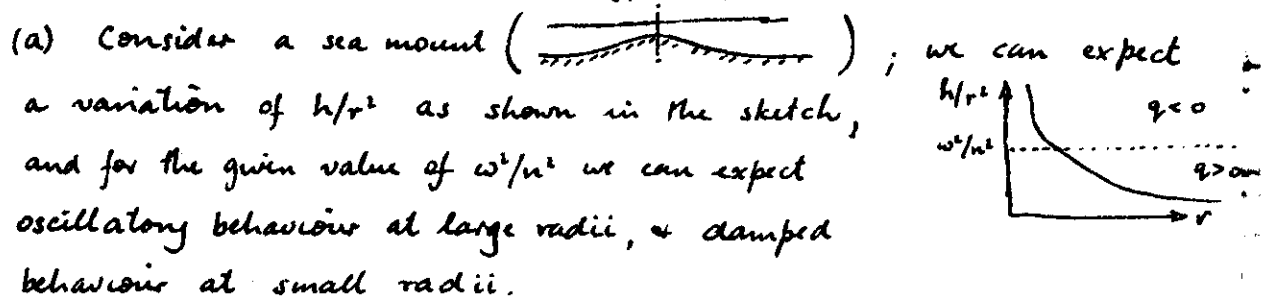 (a) Consider a sea mount ( ) ; we can expect
a variation of h/r² as shown in the sketch,
and for the given value of ω²/n² we can expect
oscillatory behaviour at large radii, & damped
behaviour at small radii.
h/r²
q<0
ω²/n²
q>0
r